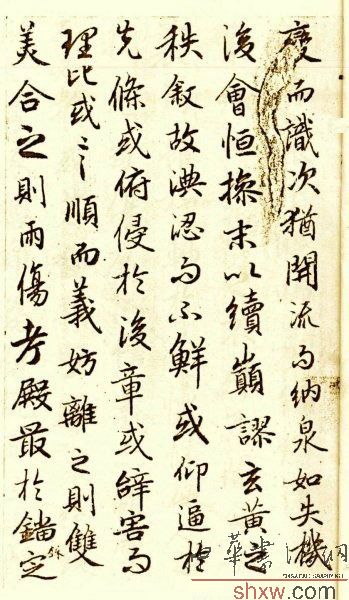 變而識次猶開流而納泉如失機
後會恒操末以續巔謬玄黃之
秩叙故淟涊而不鮮或仰逼於
先條或俯侵於後章或辭害而
理比或言順而義妨離之則雙
美合之則兩傷考殿最於錙銖定
shxw.com